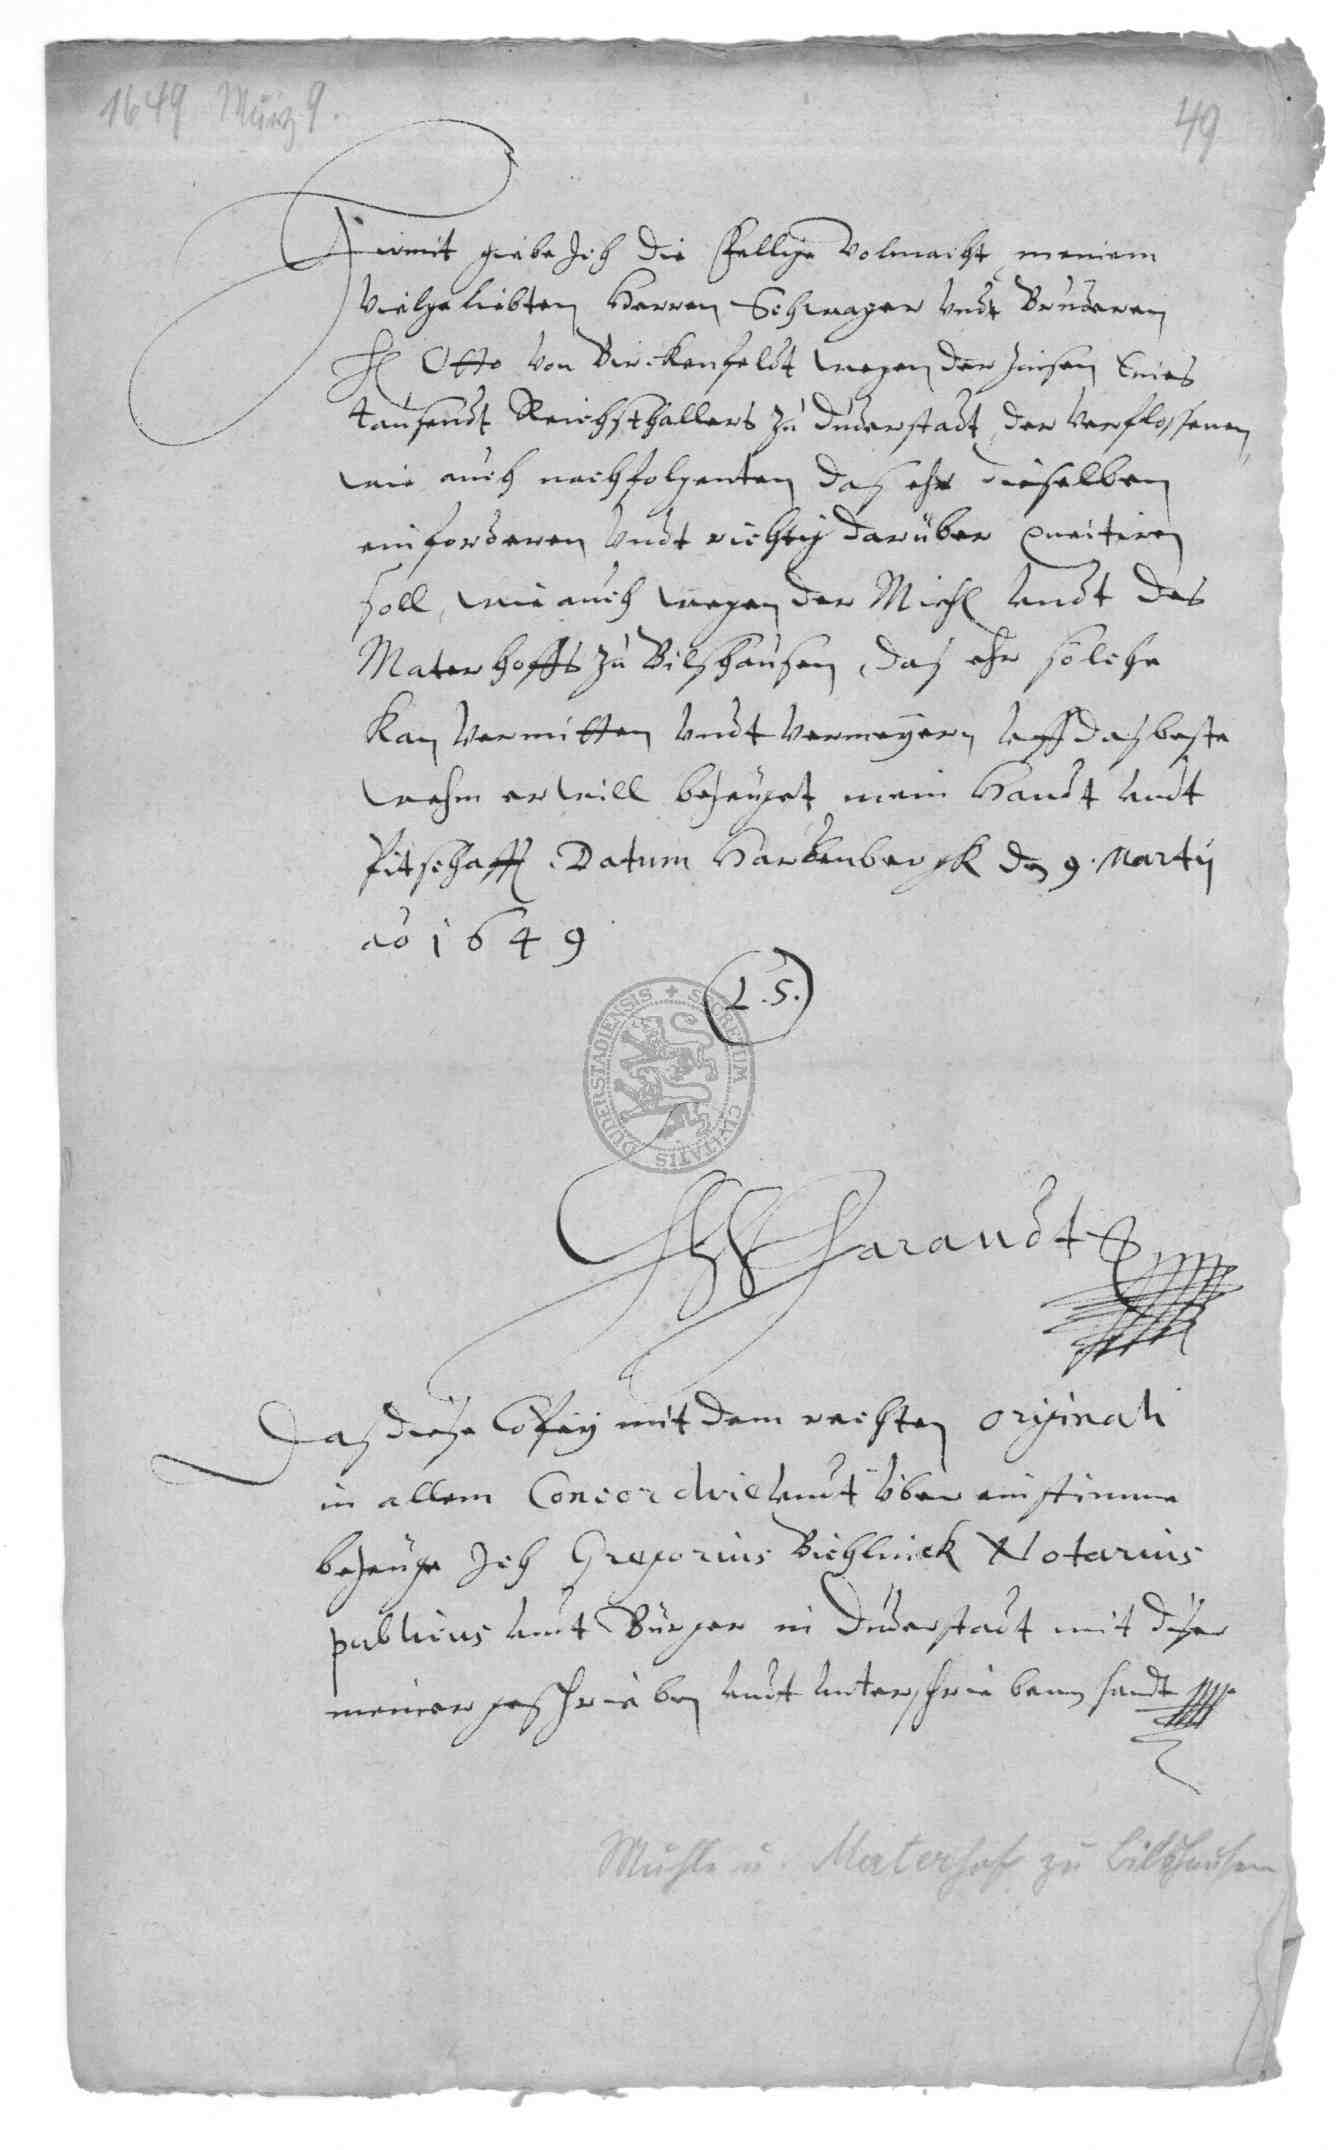 1649 März 9.
49
Hiermit giebe Ich die föllige Volmacht meinem
Vielgeliebten Herren Schwager Undt Bruderen
H Otto von Birckenfeldt wegen der Zinsen Eines
tausendt Reichsthallers zu Duderstadt, der Verflossenen,
wie auch nachfolgenten das ehr dieselben
einforderen Undt richtig darüber queitiren
soll, wie auch wegen der Miehl Undt des
Materhoffs zu Bilshausen, das ehr solche
Kan Vermitten Undt Vermeyern, Uff das beste
wehm er will bezeuget mein Handt Undt
Pitschafft. Datum Hardenbergk den 9. Martij
ao 1649
(L.S.)
SECRETUM CIVITATIS DUDERSTADIENSIS
Das diese Copey mit dem rechten originali
in allem Concordire Undt über einstimme
bezeuge Ich Gregorius Bichlinck Notarius
publicus Undt Bürger in Duderstadt mit diser
meiner geschrieben Undt Unterschriebenen handt
Mühle u. Materhof zu Bilshausen